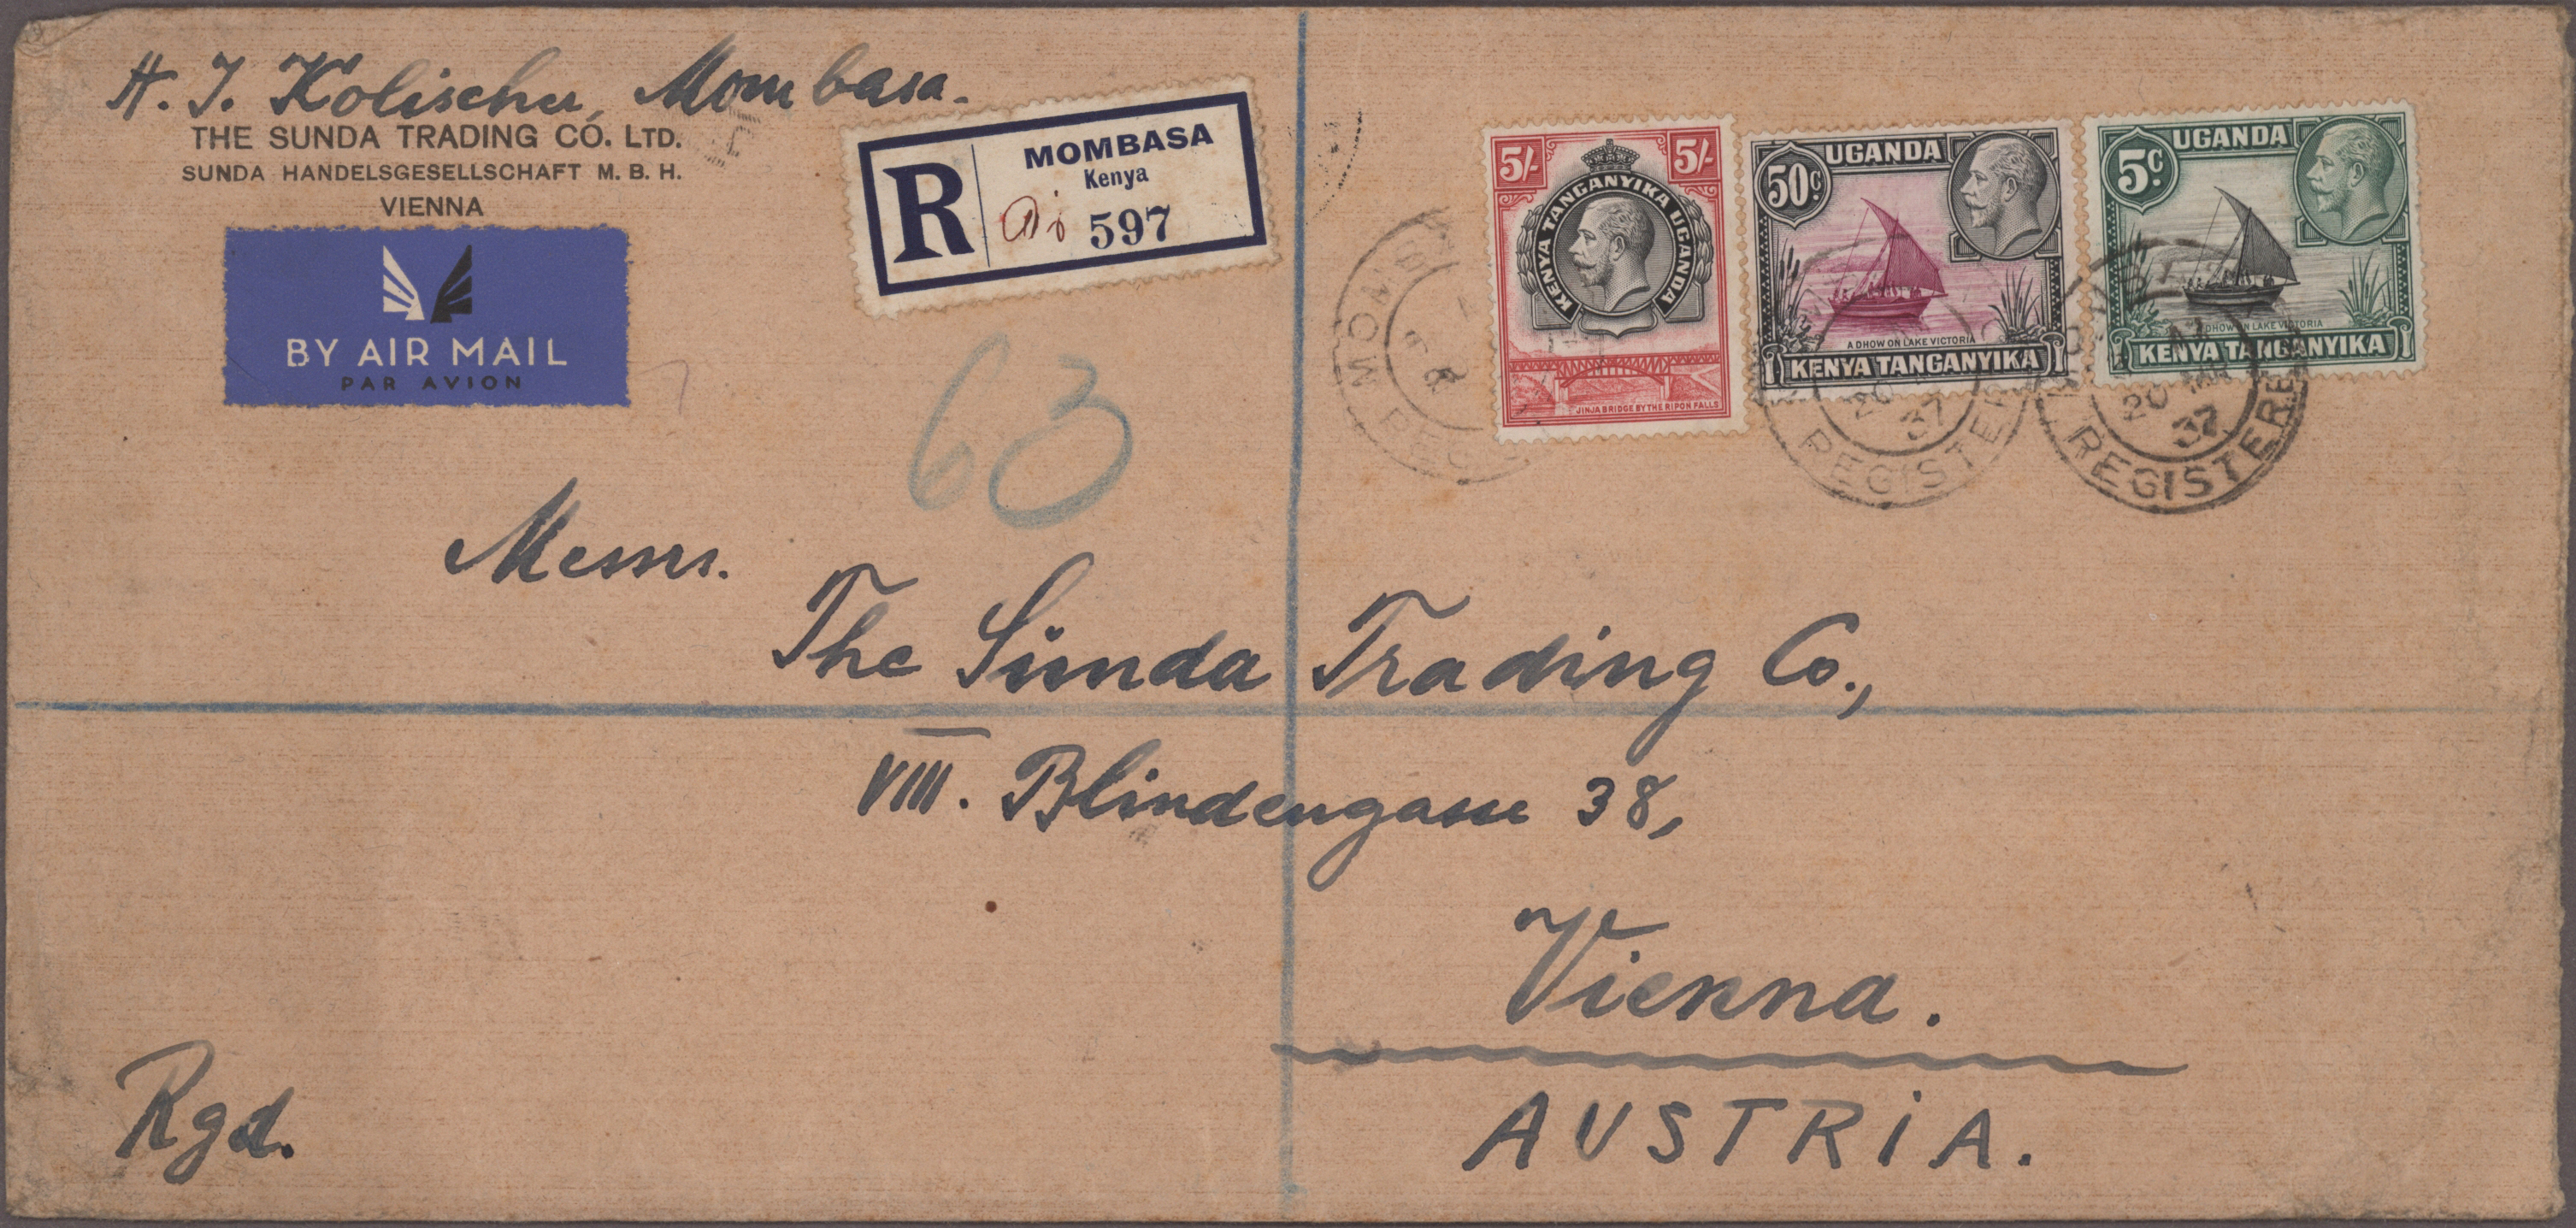 H. J. Kolischer, Mombasa.
THE SUNDA TRADING CO. LTD.
SUNDA HANDELSGESELLSCHAFT M. B. H.
VIENNA
BY AIR MAIL
PAR AVION
R
MOMBASA
Kenya
597
5/- 5/-
KENYA TANGANYIKA UGANDA
JINJA BRIDGE BY THE RIPON FALLS
UGANDA
50c
A DHOW ON LAKE VICTORIA
KENYA TANGANYIKA
UGANDA
5c
A DHOW ON LAKE VICTORIA
KENYA TANGANYIKA
REGISTERE
20
37
REGISTERE
20 MR
37
63
Messrs.
The Sünda Trading Co.,
VIII. Blindengasse 38,
Vienna.
AUSTRIA.
Rgd.